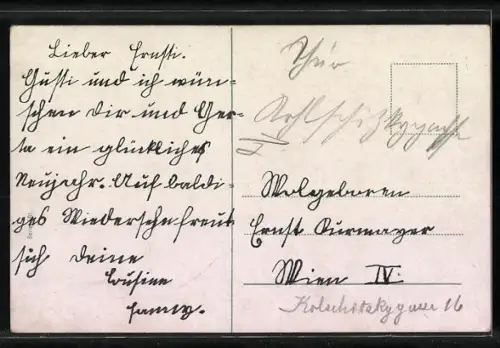 Lieber Ernsti.
Gusti und ich wün-
schen Dir und Ger-
ta ein glückliches
Neujahr. Auf baldi-
ges Wiedersehn freut
sich Deine
Cousine
Wolgeboren
Ernst Kurmayer
Wien IV.
Kolschitzkygasse 16